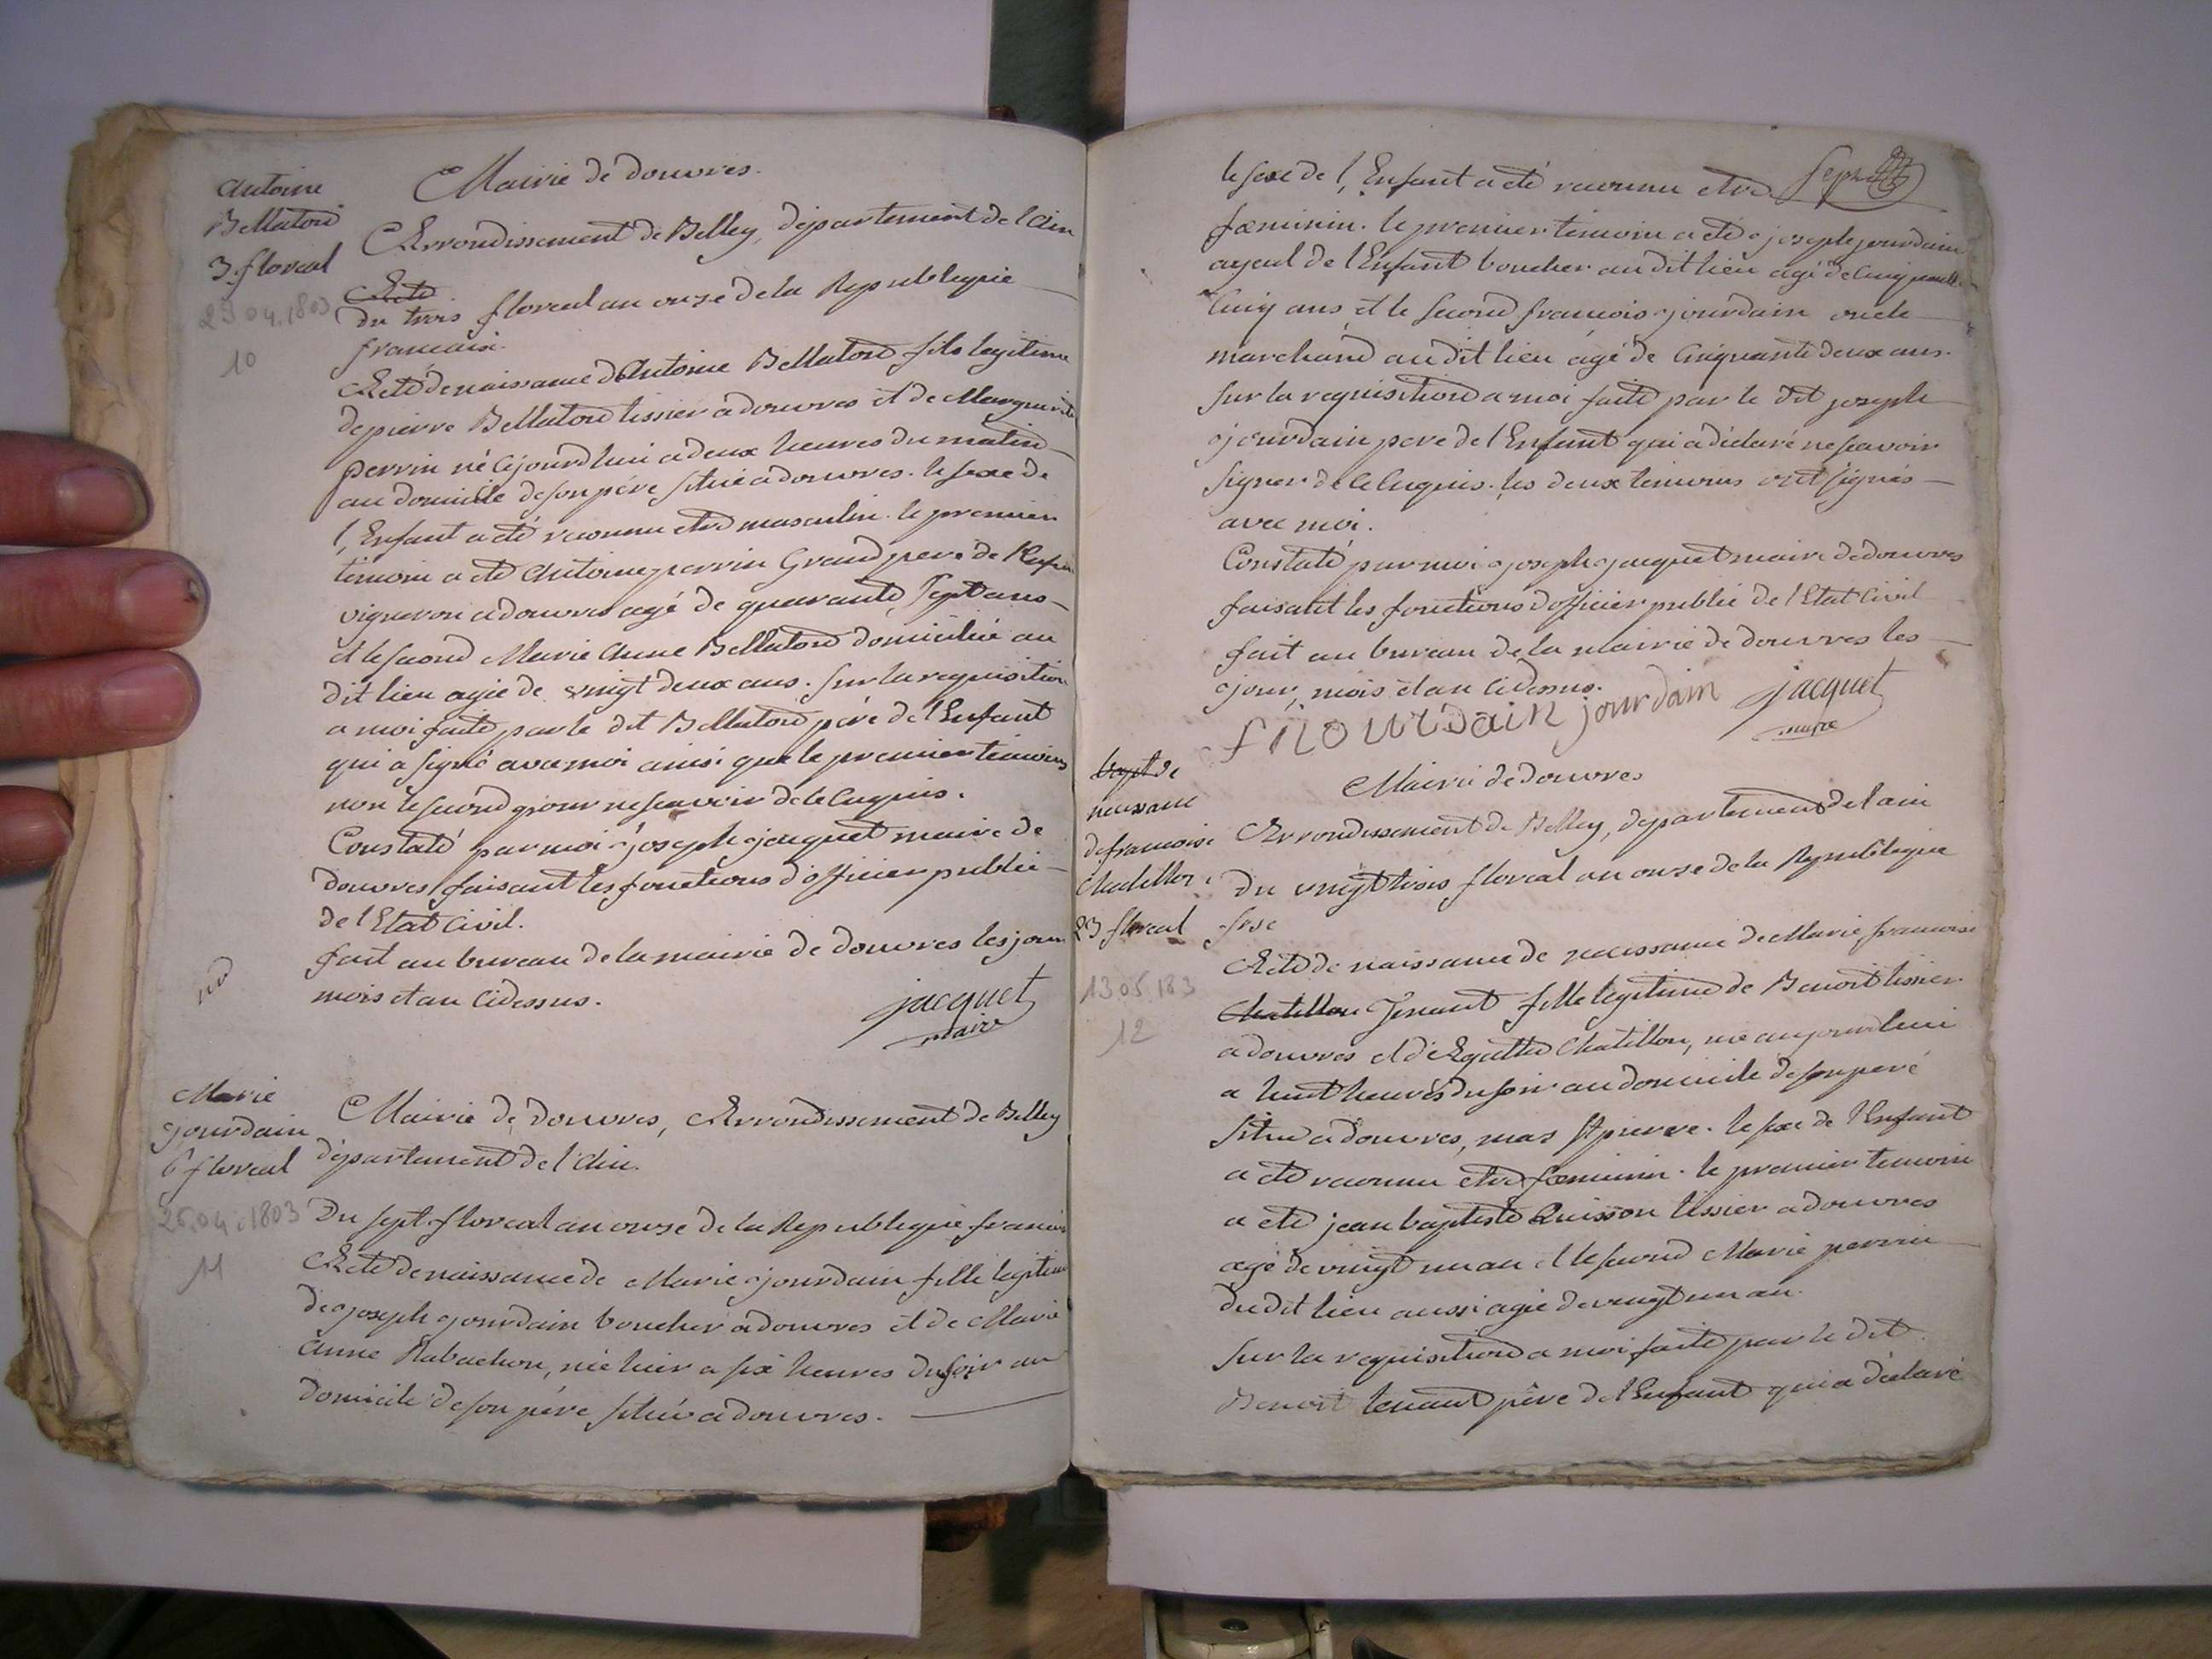 Antoine
Bellaton
3 floreal
23 04.1803
10
Mairie de douvres.
Arrondissement de Belley, département de l'Ain
Acte
du trois floreal an onze de la Republique
francaise.
Acte de naissance d'Antoine Bellaton fils legitime
de pierre Bellaton tissier a douvres et de Marguerite
perrin né cejourdhui a deux heures du matin
au domicile de son pére situé a douvres. le sexe de
l'Enfant a eté reconnu etre masculin. le premier
temoin a eté Antoine perrin Grand pere de l'Enfant
vigneron a douvres agé de quarante sept ans
et le second Marie Anne Bellaton domiciliée au
dit lieu agée de vingt deux ans. sur la requisition
a moi faite par le dit Bellaton pére de l'Enfant
qui a signé avec moi ainsi que le premier temoins
non le second pour ne scavoir de ce enquis.
Constaté par moi joseph jacquet maire de
douvres faisant les fonctions d'officier public
de l'Etat Civil.
fait au bureau de la mairie de douvres les jour
mois et an cidessus.
jacquet
maire
Marie
jourdain
6 floreal
26.04.1803
11
Mairie de douvres, Arrondissement de Belley
département de l'Ain.
Du sept floreal an onze de la Republique francaise
Acte de naissance de Marie jourdain fille legitime
de joseph jourdain boucher a douvres et de Marie
Anne Rabachon, née hier a six heures du soir au
domicile de son pére situé a douvres.
le sexe de l'Enfant a eté reconnu etre
fœminin. le premier temoin a eté joseph jourdain
ayeul de l'Enfant boucher au dit lieu agé de cinquante
cinq ans et le second francois jourdain oncle
marchand au dit lieu agé de cinquante deux ans.
sur la requisition a moi faite par le dit joseph
jourdain pere de l'Enfant qui a déclaré ne scavoir
signer de ce enquis. les deux temoins ont signés
avec moi.
Constaté par moi joseph jacquet maire de douvres
faisant les fonctions d'officier public de l'Etat Civil
fait au bureau de la mairie de douvres les
jour, mois et an cidessus.
jourdain jacquet
maire
naissance
de francoise
Chatillon
23 floreal
13 05 183
12
Mairie de douvres
Arrondissement de Belley, département de l'ain
Du vingt trois floreal an onze de la Republique
frse
Acte de naissance de naissance de Marie francoise
Chatillon Tenant fille legitime de Benoit tissier
a douvres et d'Agathe Chatillon, née aujourdhui
a huit heures du soir au domicile de son pere
situé a douvres, mas St pierre. le sexe de l'Enfant
a eté reconnu etre fœminin. le premier temoin
a eté jean baptiste Quisson tissier a douvres
agé de vingt un an et le second Marie perrin
du dit lieu aussi agée de vingt un an.
sur la requisition a moi faite par le dit
Benoit tenant pére de l'Enfant qui a déclaré